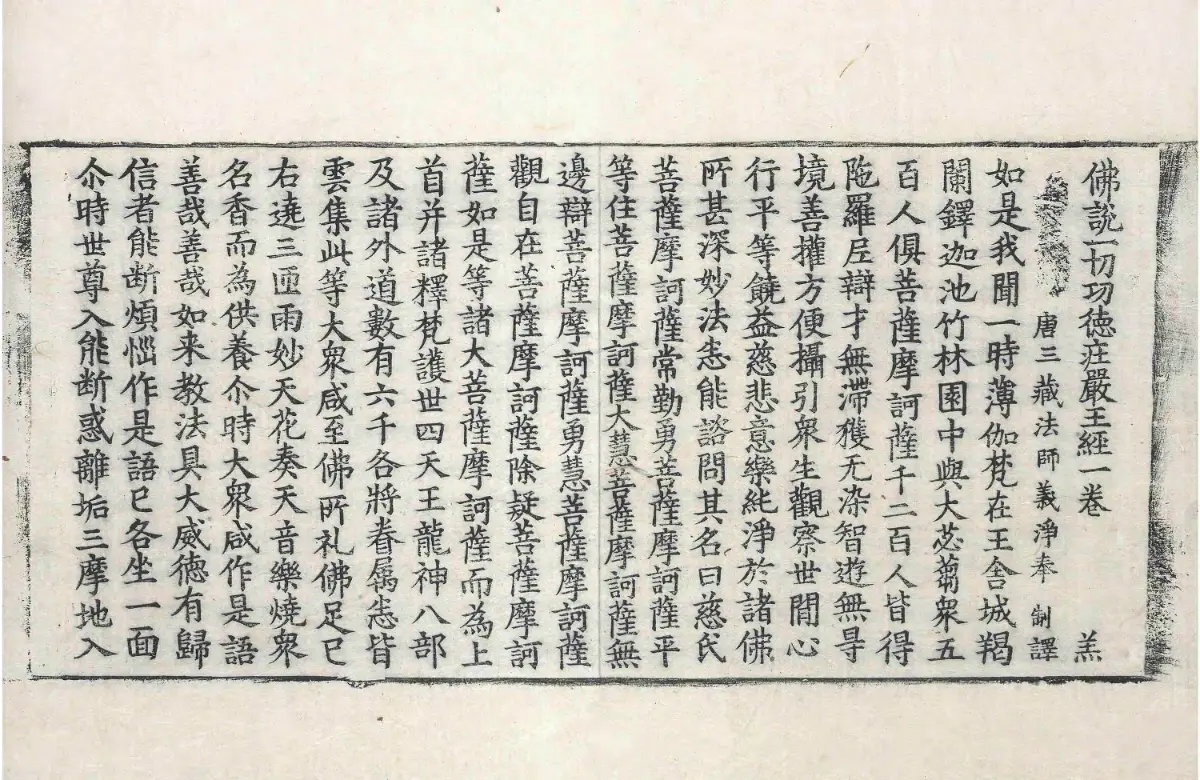 佛說一切功徳庄嚴王經一卷 羔
唐三藏法師義淨奉 制譯
如是我聞一時薄伽梵在王舍城羯
闌鐸迦池竹林園中與大苾蒭衆五
百人俱菩薩摩訶薩千二百人皆得
陁羅尼辯才無滯獲无染智遊無㝵
境善權方便攝引衆生觀察世間心
行平等饒益慈悲意樂純淨於諸佛
所甚深妙法悉能諮問其名曰慈氏
菩薩摩訶薩常勤勇菩薩摩訶薩平
等住菩薩摩訶薩大慧菩薩摩訶薩無
邊辯菩薩摩訶薩勇慧菩薩摩訶薩
觀自在菩薩摩訶薩除疑菩薩摩訶
薩如是等諸大菩薩摩訶薩而為上
首并諸釋梵護世四天王龍神八部
及諸外道數有六千各將眷属悉皆
雲集此等大衆咸至佛所礼佛足已
右遶三匝雨妙天花奏天音樂燒衆
名香而為供養尒時大衆咸作是語
善哉善哉如来教法具大威徳有歸
信者能断煩惱作是語已各坐一面
尒時世尊入能断惑離垢三摩地入